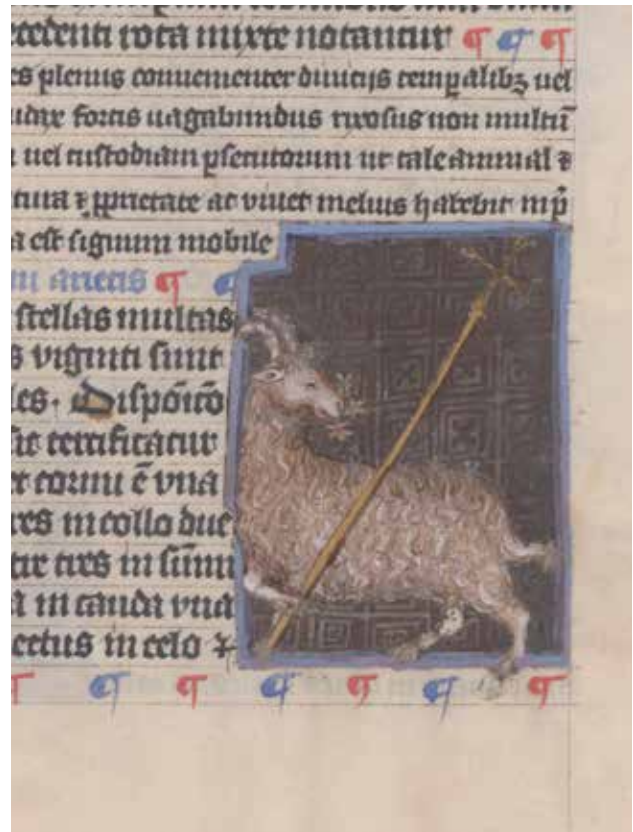 cedenti rota mixte notantur ¶ ¶ ¶
es plenus conuenienter diuicijs temp alibꝫ uel
udax fortis uagabundus rixosus non multũ
uel custodiam psecutorum ut tale animal ⁊
tura ⁊ ꝓprietate ac viuet melius habebit
a est signum mobile
m arietis ¶ ¶
stellas multas
s viginti sunt
les. Dispoĩcõ
sic certificatur
cornu ẽ vna
res in collo due
tur tres in sũmi
a in cauda vna
ectus in celo ⁊
¶ ¶ ¶ ¶ ¶ ¶ ¶